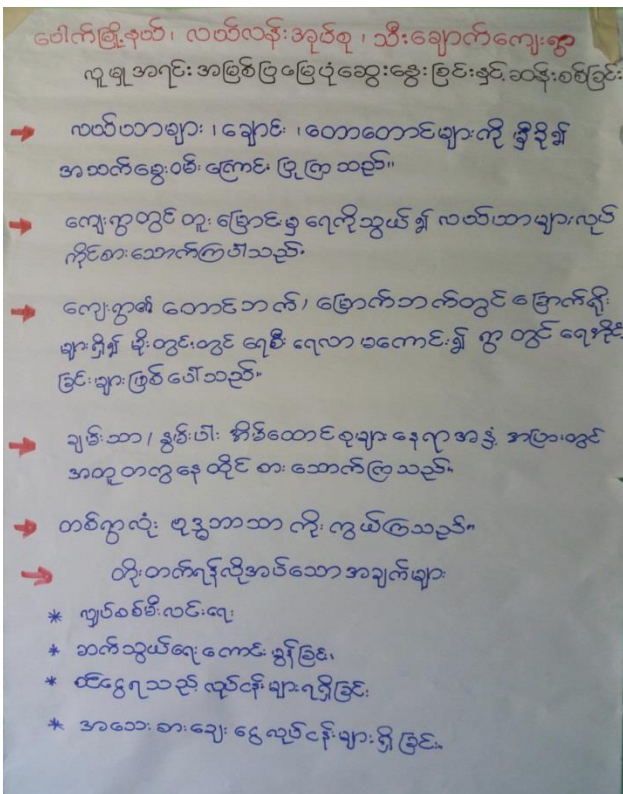 ပေါက်မြို့နယ်၊ လယ်လန်းအုပ်စု၊ သီးချောက်ကျေးရွာ
လူမှုအရင်းအမြစ်ပြမြေပုံဆွေးနွေးခြင်းနှင့်ဆန်းစစ်ခြင်း
လယ်ယာများ၊ ချောင်း၊ တောတောင်များကို မှီခို၍
အသက်မွေးဝမ်းကြောင်း ပြုကြသည်။
ကျေးရွာတွင် တူးမြောင်းမှ ရေကိုသွယ်၍ လယ်ယာများလုပ်
ကိုင်စားသောက်ကြပါသည်။
ကျေးရွာ၏ တောင်ဘက်/မြောက်ဘက်တွင် မြောက်ရိုး
များရှိ၍ မိုးတွင်းတွင် ရေစီးရေလာ မကောင်း၍ ရွာတွင် ရေ
ခြင်းများဖြစ်ပေါ်သည်။
ချမ်းသာ/နွမ်းပါး အိမ်ထောင်စုများ နေရာအနှံ့ အပြားတွင်
အတူတကွနေထိုင် စားသောက်ကြသည်။
တစ်ရွာလုံး ဗုဒ္ဓဘာသာ ကိုးကွယ်ကြသည်။
တိုးတက်ရန်လိုအပ်သောအချက်များ
* လျှပ်စစ်မီးလင်းရေး
* ဆက်သွယ်ရေးကောင်းမွန်ခြင်း၊
* ဝင်ငွေရသည့် လုပ်ငန်းများရရှိခြင်း
* အသေးစားချေးငွေလုပ်ငန်းများရှိခြင်း။